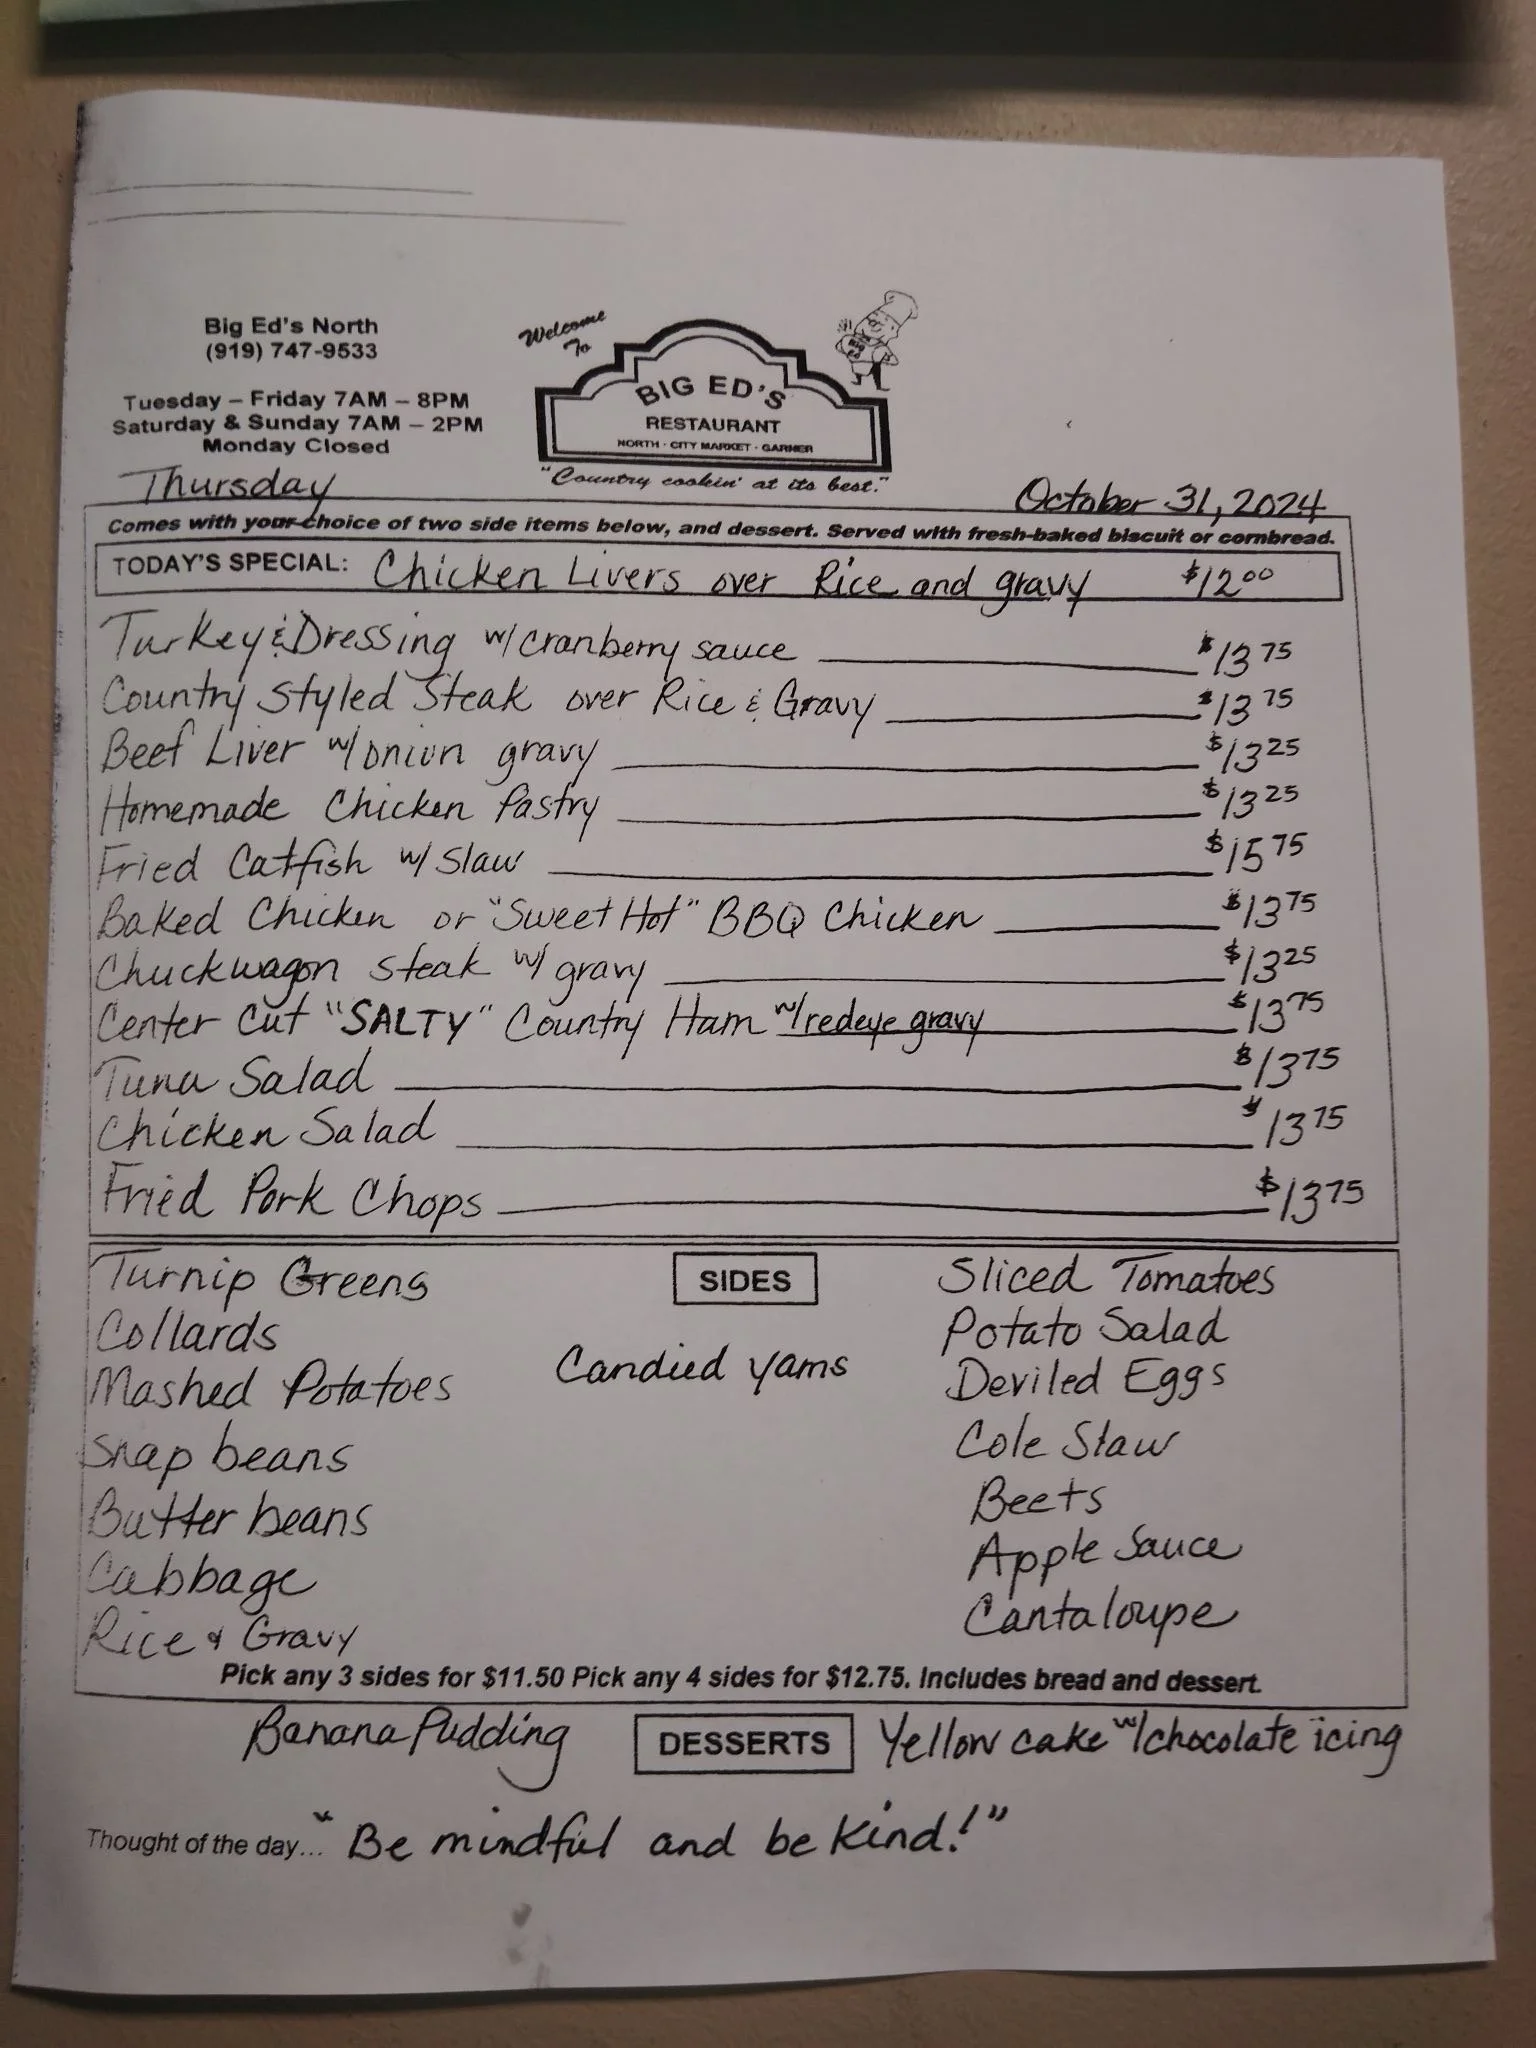 Big Ed's North
(919) 747-9533
Tuesday – Friday 7AM – 8PM
Saturday & Sunday 7AM – 2PM
Monday Closed
Welcome
To
BIG ED'S
RESTAURANT
NORTH · CITY MARKET · GARNER
"Country cookin' at its best."
BIG ED
Thursday
October 31, 2024
Comes with your choice of two side items below, and dessert. Served with fresh-baked biscuit or cornbread.
TODAY'S SPECIAL: Chicken Livers over Rice and gravy $12.00
Turkey & Dressing w/ cranberry sauce $13 75
Country Styled Steak over Rice & Gravy $13 75
Beef Liver w/ onion gravy $13 25
Homemade Chicken Pastry $13 25
Fried Catfish w/ Slaw $15 75
Baked Chicken or "Sweet Hot" BBQ Chicken $13 75
Chuckwagon steak w/ gravy $13 25
Center Cut "SALTY" Country Ham w/ redeye gravy $13 75
Tuna Salad $13 75
Chicken Salad $13 75
Fried Pork Chops $13 75
SIDES
Turnip Greens
Collards
Mashed Potatoes
Snap beans
Butter beans
Cabbage
Rice & Gravy
Candied yams
Sliced Tomatoes
Potato Salad
Deviled Eggs
Cole Slaw
Beets
Apple Sauce
Cantaloupe
Pick any 3 sides for $11.50 Pick any 4 sides for $12.75. Includes bread and dessert.
Banana Pudding DESSERTS Yellow cake w/ chocolate icing
Thought of the day... "Be mindful and be kind!"